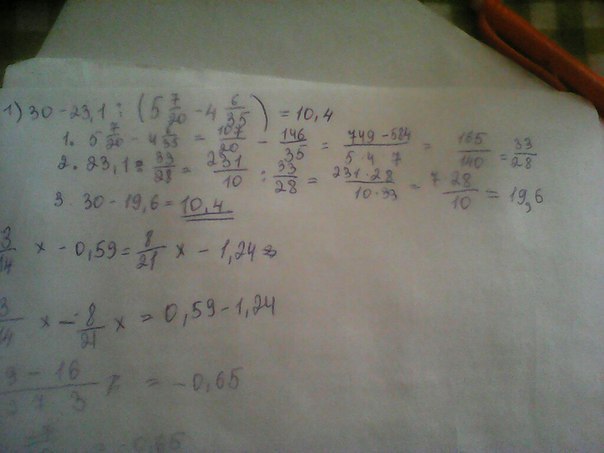 1) 30 - 23,1 : (5 7/20 - 4 6/35) = 10,4
1. 5 7/20 - 4 6/35 = 107/20 - 146/35 = 749 - 584/5 4 7 = 165/140 = 33/28
2. 23,1 : 33/28 = 231/10 : 33/28 = 231 · 28/10 · 33 = 7 28/10 = 19,6
3. 30 - 19,6 = 10,4
3/14 x - 0,59 = 8/21 x - 1,24
3/14 x - 8/21 x = 0,59 - 1,24
9 - 16/2 7 3 = -0,65